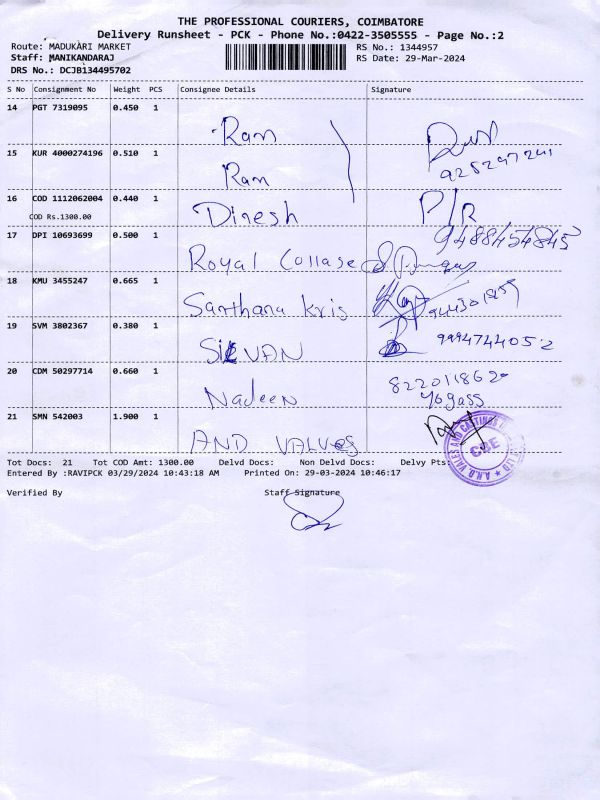 THE PROFESSIONAL COURIERS, COIMBATORE
Delivery Runsheet - PCK - Phone No.:0422-3505555 - Page No.:2
Route: MADUKARI MARKET
Staff: MANIKANDARAJ
DRS No.: DCJB134495702
RS No.: 1344957
RS Date: 29-Mar-2024
S No Consignment No Weight PCS Consignee Details Signature
14 PGT 7319095 0.450 1
Ram
15 KUR 4000274196 0.510 1
Ram
16 COD 1112062004 0.440 1
COD Rs.1300.00
Dinesh P/R
9488454845
17 DPI 10693699 0.500 1
Royal Collase
18 KMU 3455247 0.665 1
Santhana Kris
19 SVM 3802367 0.380 1
9994744052
SILVAN
20 CDM 50297714 0.660 1
Nadeen Yogass
21 SMN 542003 1.900 1
AND VALVES
CBE
Tot Docs: 21 Tot COD Amt: 1300.00 Delvd Docs: Non Delvd Docs: Delvy Pts:
Entered By :RAVIPCK 03/29/2024 10:43:18 AM Printed On: 29-03-2024 10:46:17
Verified By Staff Signature